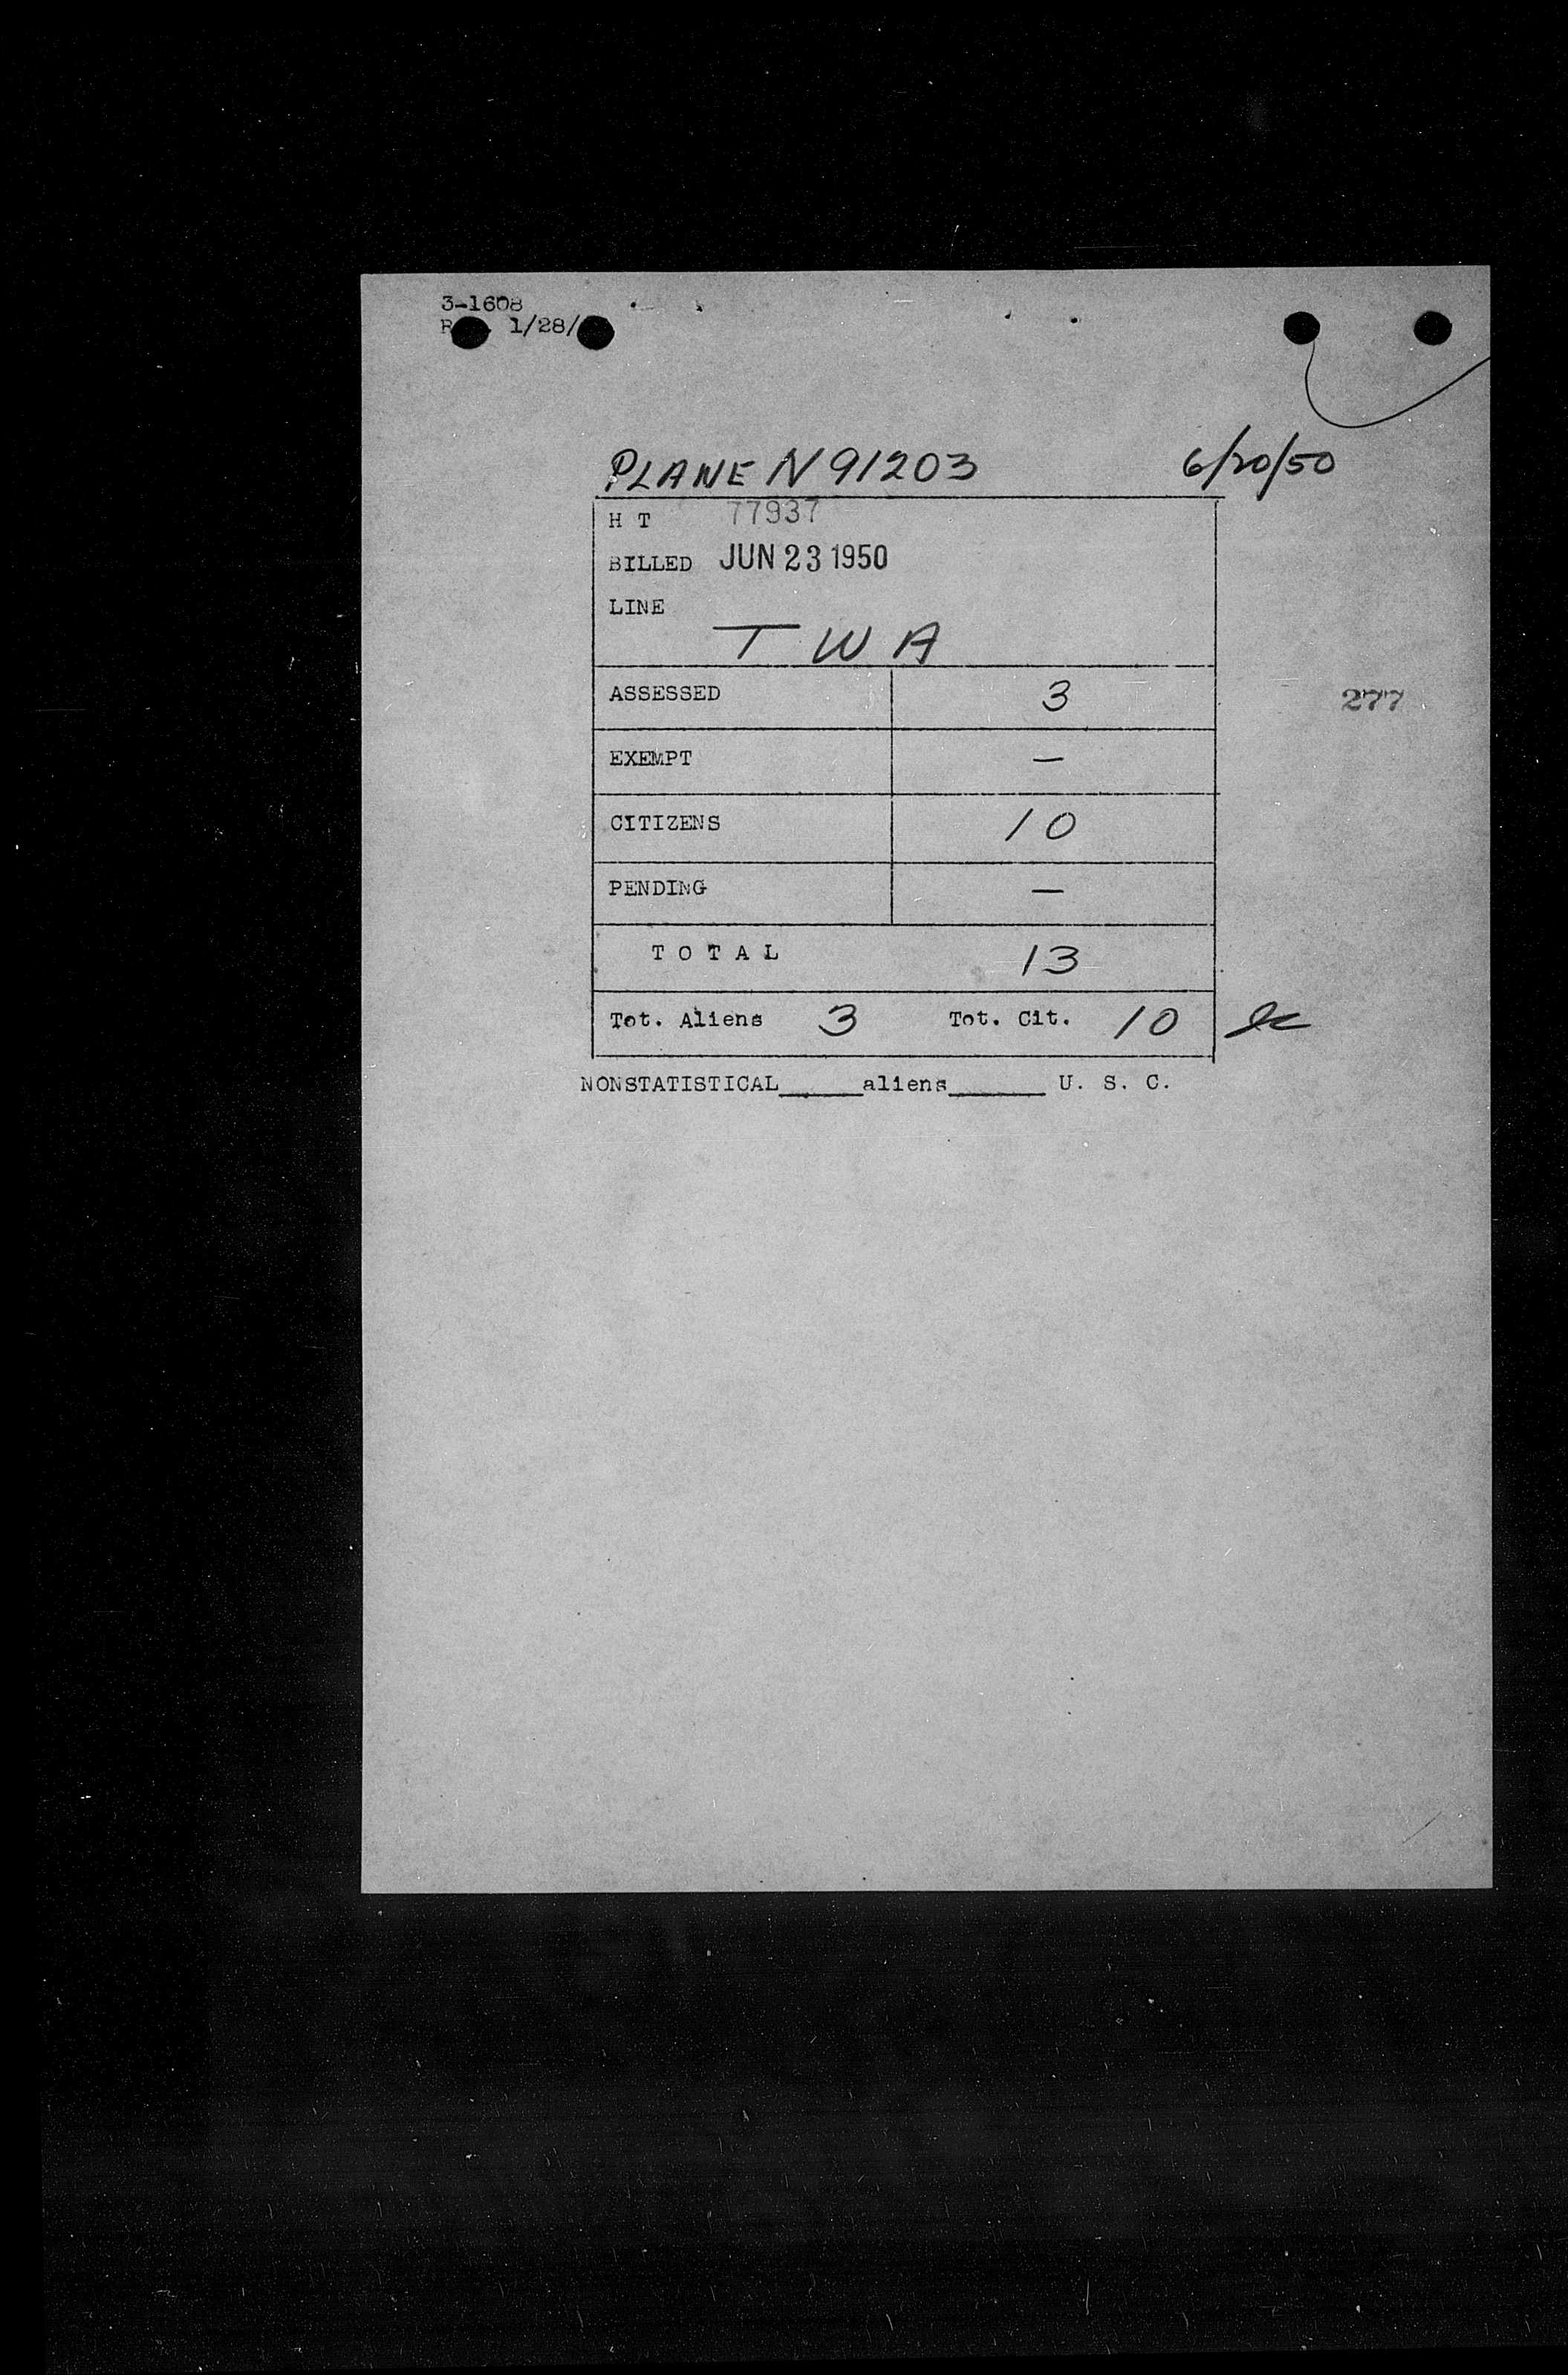 3-1608
1/28/
PLANE N91203 6/20/50
H T 77937
BILLED JUN 23 1950
LINE
TWA
ASSESSED 3
277
EXEMPT —
CITIZENS 10
PENDING —
TOTAL 13
Tot. Aliens 3 Tot. Cit. 10
NONSTATISTICAL_____aliens______ U. S. C.